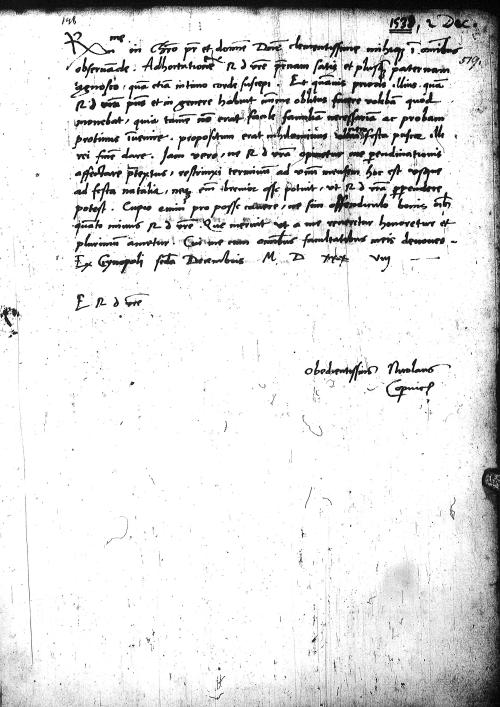 198
1538, 2 Dec.
R me in Chro pr et domine Dne clementissime mihi i omibus
579.
observande. Adhortatione R d vre pternam satis et plusq paternam
agnosco: quā etiā intimo corde suscepi. Et quāvis prioris illius quā
R d vra prius et in genere habuit minime oblitus facere voleba quod
monebat, quia tamē nō erat facile familia necessaria ac probam
protinus īvenire. propositum erat nihilominus ad festa pasce ille
rei finē dare. Iam vero, ne R d vra opinetur me perendinationis
affectare ptextus, restrinxi terminū ad vnū mensem hoc est usque
ad festa natalia, neq em̄ brevior esse potuit, ut R d vra perpendere
potest. Cupio enim pro posse cavere, ne sim offendiculo bonis
quāto minus R d vre. Que meruit ut a me veneretur honoretur et
plurimū ametur. Cui me cum omibus facultatibus meis devoveo.
Ex Gynopoli scda Decembris M. D xxx viij
E R d vre
obedientissimus Nicolaus
Copnic